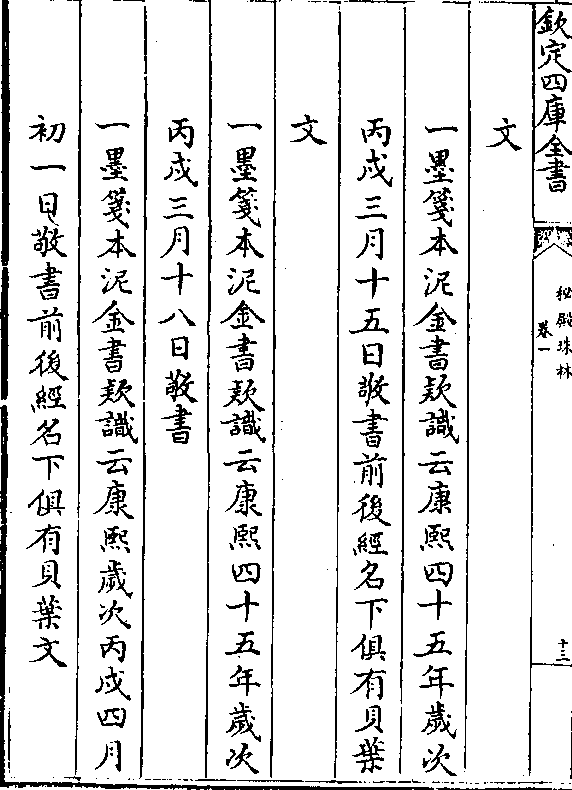 欽定四庫全書
秘殿珠林
卷一
十三
文
一墨箋本泥金書款識云康熙四十五年歲次
丙戌三月十五日敬書前後經名下俱有貝葉
文
一墨箋本泥金書款識云康熙四十五年歲次
丙戌三月十八日敬書
一墨箋本泥金書款識云康熙歲次丙戌四月
初一日敬書前後經名下俱有貝葉文